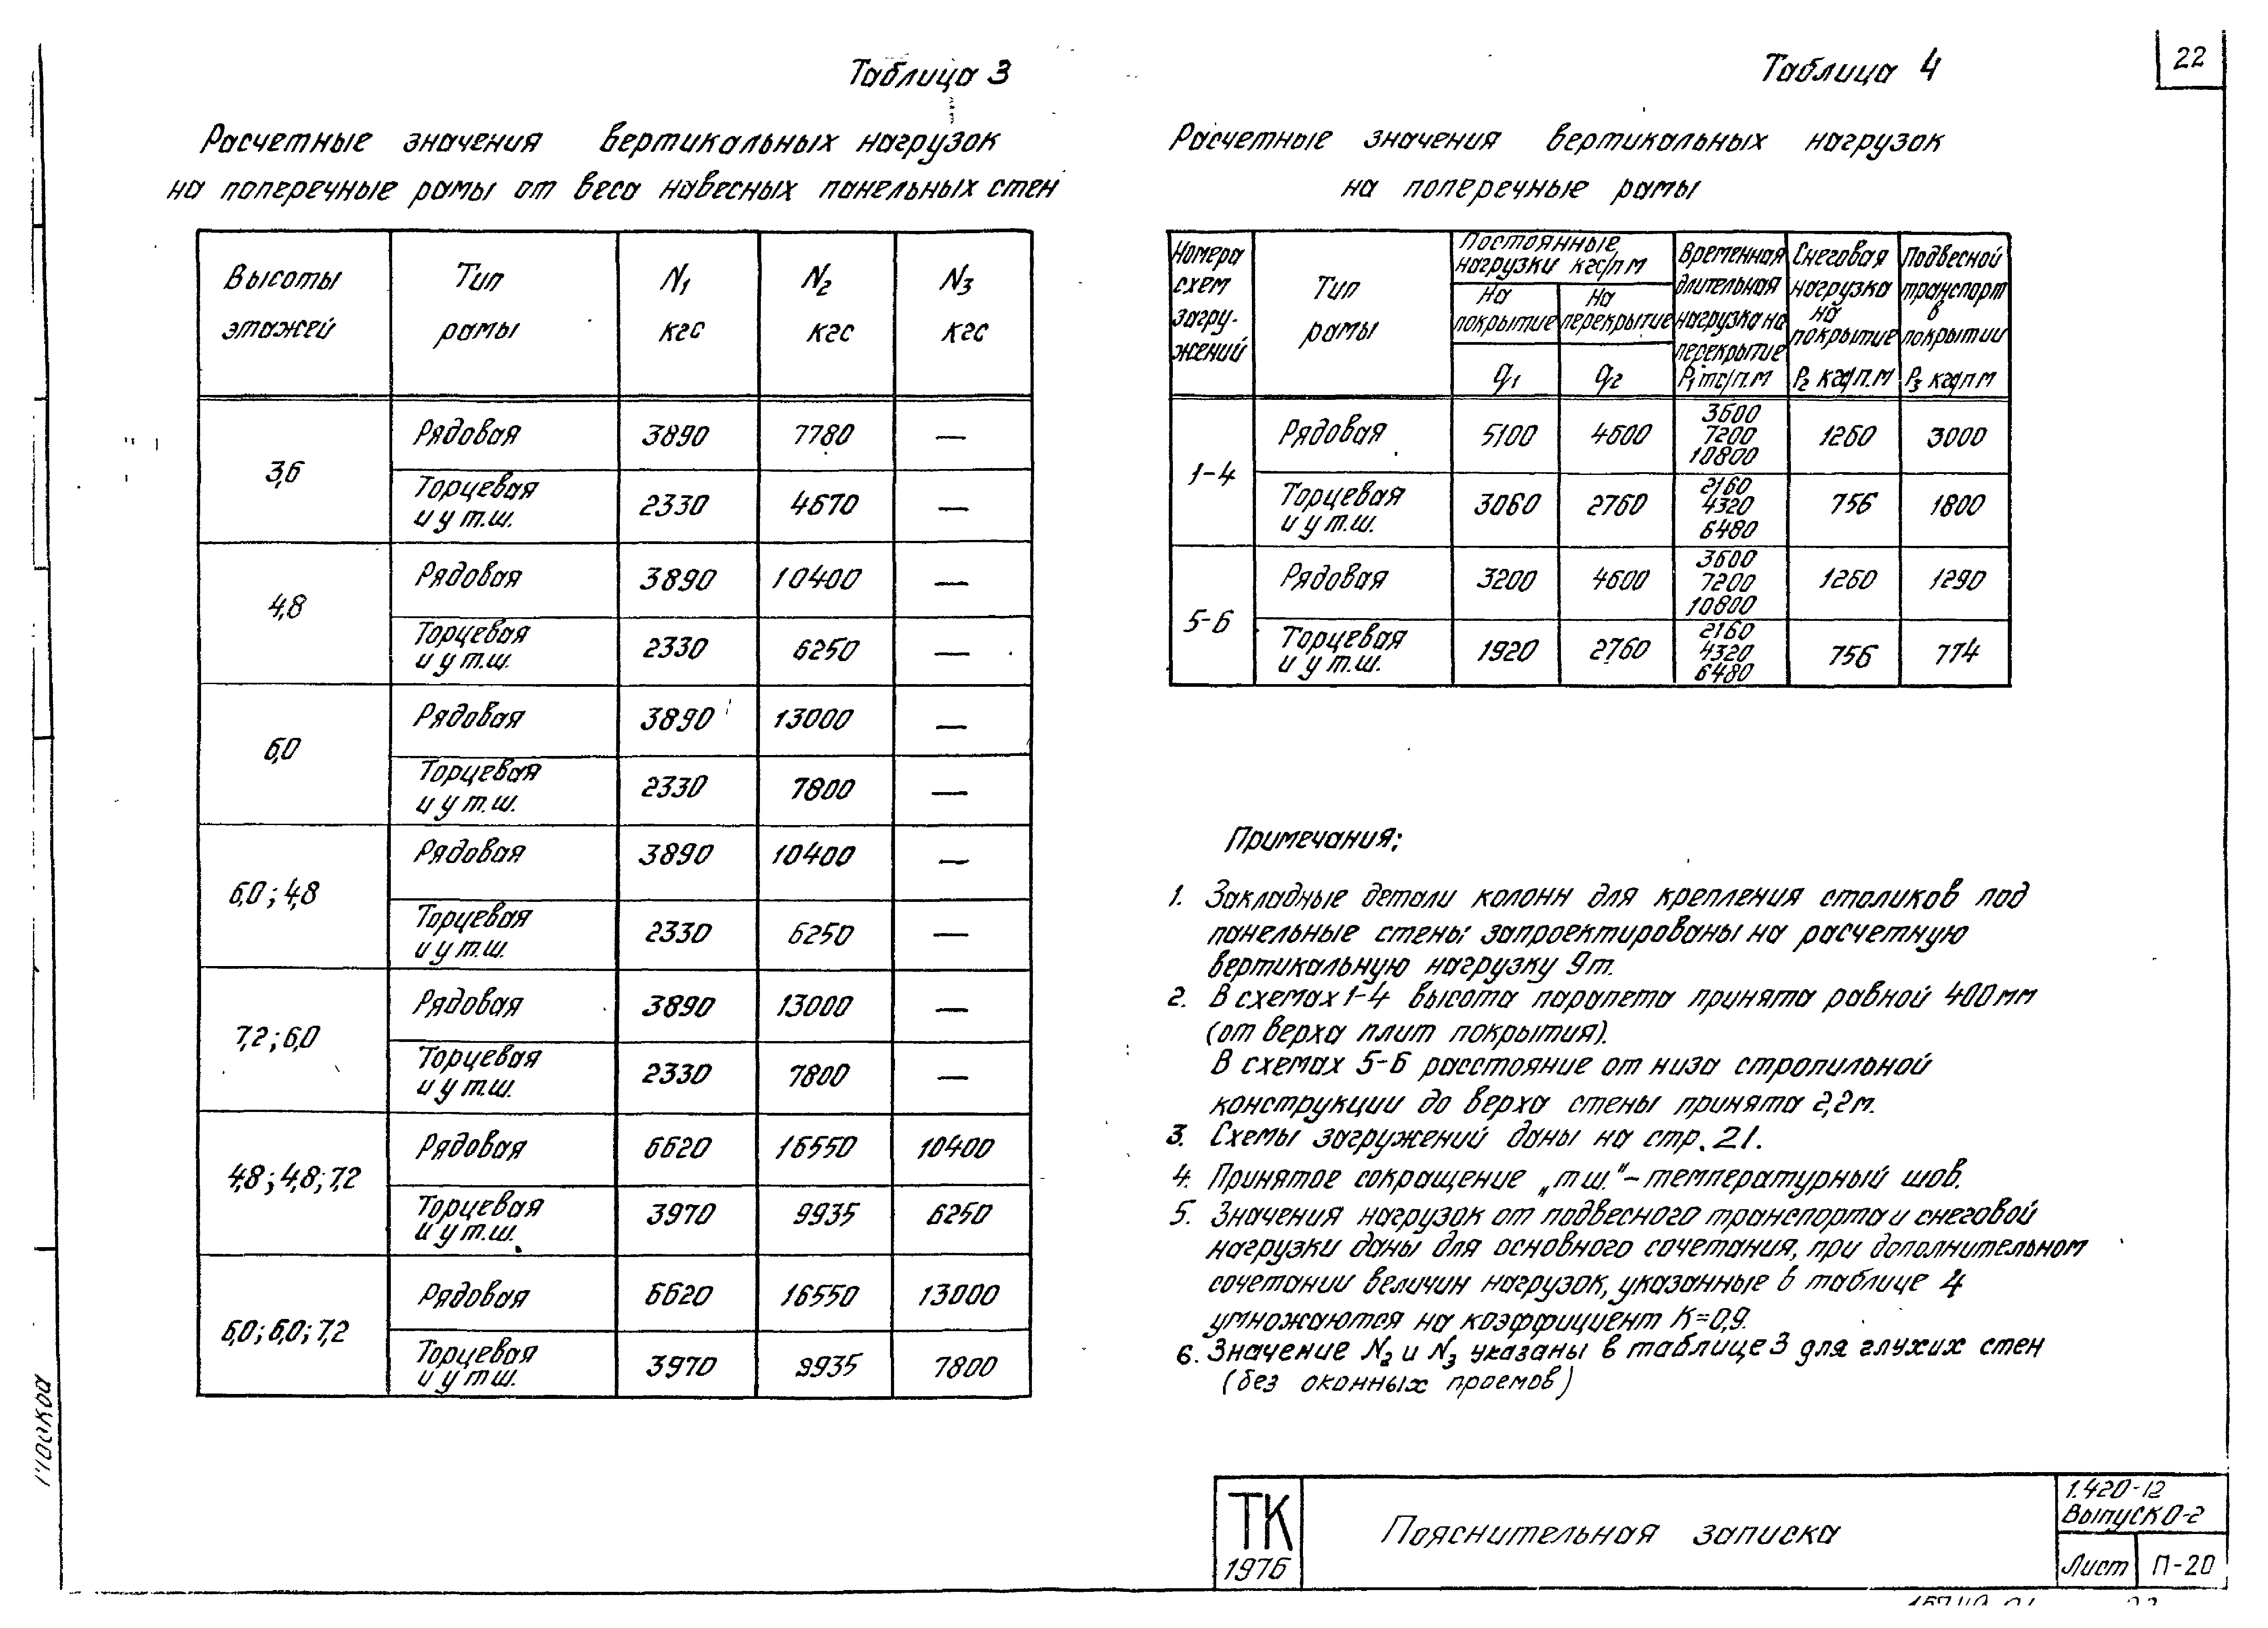 22
Таблица 3
Расчетные значения вертикальных нагрузок
на поперечные рамы от веса навесных панельных стен
Высоты этажей | Тип рамы | N1 кгс | N2 кгс | N3 кгс
3,6 | Рядовая | 3890 | 7780 | —
Торцевая и у т.ш. | 2330 | 4670 | —
4,8 | Рядовая | 3890 | 10400 | —
Торцевая и у т.ш. | 2330 | 6250 | —
6,0 | Рядовая | 3890 | 13000 | —
Торцевая и у т.ш. | 2330 | 7800 | —
6,0; 4,8 | Рядовая | 3890 | 10400 | —
Торцевая и у т.ш. | 2330 | 6250 | —
7,2; 6,0 | Рядовая | 3890 | 13000 | —
Торцевая и у т.ш. | 2330 | 7800 | —
4,8; 4,8; 7,2 | Рядовая | 6620 | 16550 | 10400
Торцевая и у т.ш. | 3970 | 9935 | 6250
6,0; 6,0; 7,2 | Рядовая | 6620 | 16550 | 13000
Торцевая и у т.ш. | 3970 | 9935 | 7800
Таблица 4
Расчетные значения вертикальных нагрузок
на поперечные рамы
Номера схем загружений | Тип рамы | Постоянные нагрузки кгс/п м | Временная длительная нагрузка на перекрытие P1 тс/п.м | Снеговая нагрузка на покрытие P2 кг/п.м | Подвесной транспорт в покрытии P3 кг/п м
На покрытие q1 | На перекрытие q2
1-4 | Рядовая | 5100 | 4600 | 3600 7200 10800 | 1260 | 3000
Торцевая и у т.ш. | 3060 | 2760 | 2160 4320 6480 | 756 | 1800
5-6 | Рядовая | 3200 | 4600 | 3600 7200 10800 | 1260 | 1290
Торцевая и у т.ш. | 1920 | 2760 | 2160 4320 6480 | 756 | 774
Примечания:
1. Закладные детали колонн для крепления столиков под
панельные стены запроектированы на расчетную
вертикальную нагрузку 9т.
2. В схемах 1-4 высота парапета принята равной 400мм
(от верха плит покрытия).
В схемах 5-6 расстояние от низа стропильной
конструкции до верха стены принята 2,2м.
3. Схемы загружений даны на стр. 21.
4. Принятое сокращение „т ш." – температурный шов.
5. Значения нагрузок от подвесного транспорта и снеговой
нагрузки даны для основного сочетания, при дополнительном
сочетании величин нагрузок, указанные в таблице 4
умножаются на коэффициент К=0,9.
6. Значение N2 и N3 указаны в таблице 3 для глухих стен
(без оконных проемов)
ТК
1976
Пояснительная записка
1.420-12
Выпуск 0-2
Лист П-20